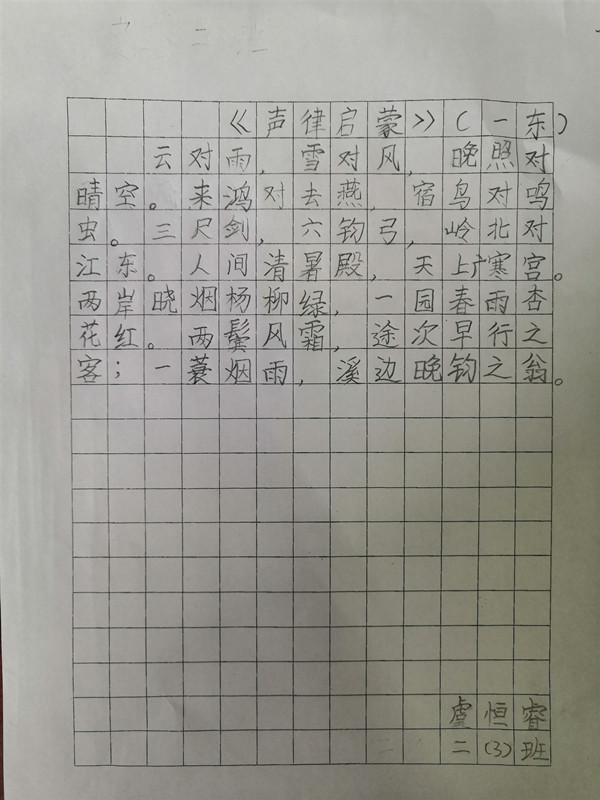 《声律启蒙》（一东）
云对雨，雪对风，晚照对
晴空。来鸿对去燕，宿鸟对鸣
虫。三尺剑，六钧弓，岭北对
江东。人间清暑殿，天上广寒宫。
两岸晓烟杨柳绿，一园春雨杏
花红。两鬓风霜，途次早行之
客；一蓑烟雨，溪边晚钓之翁。
虞恒睿
二（3）班